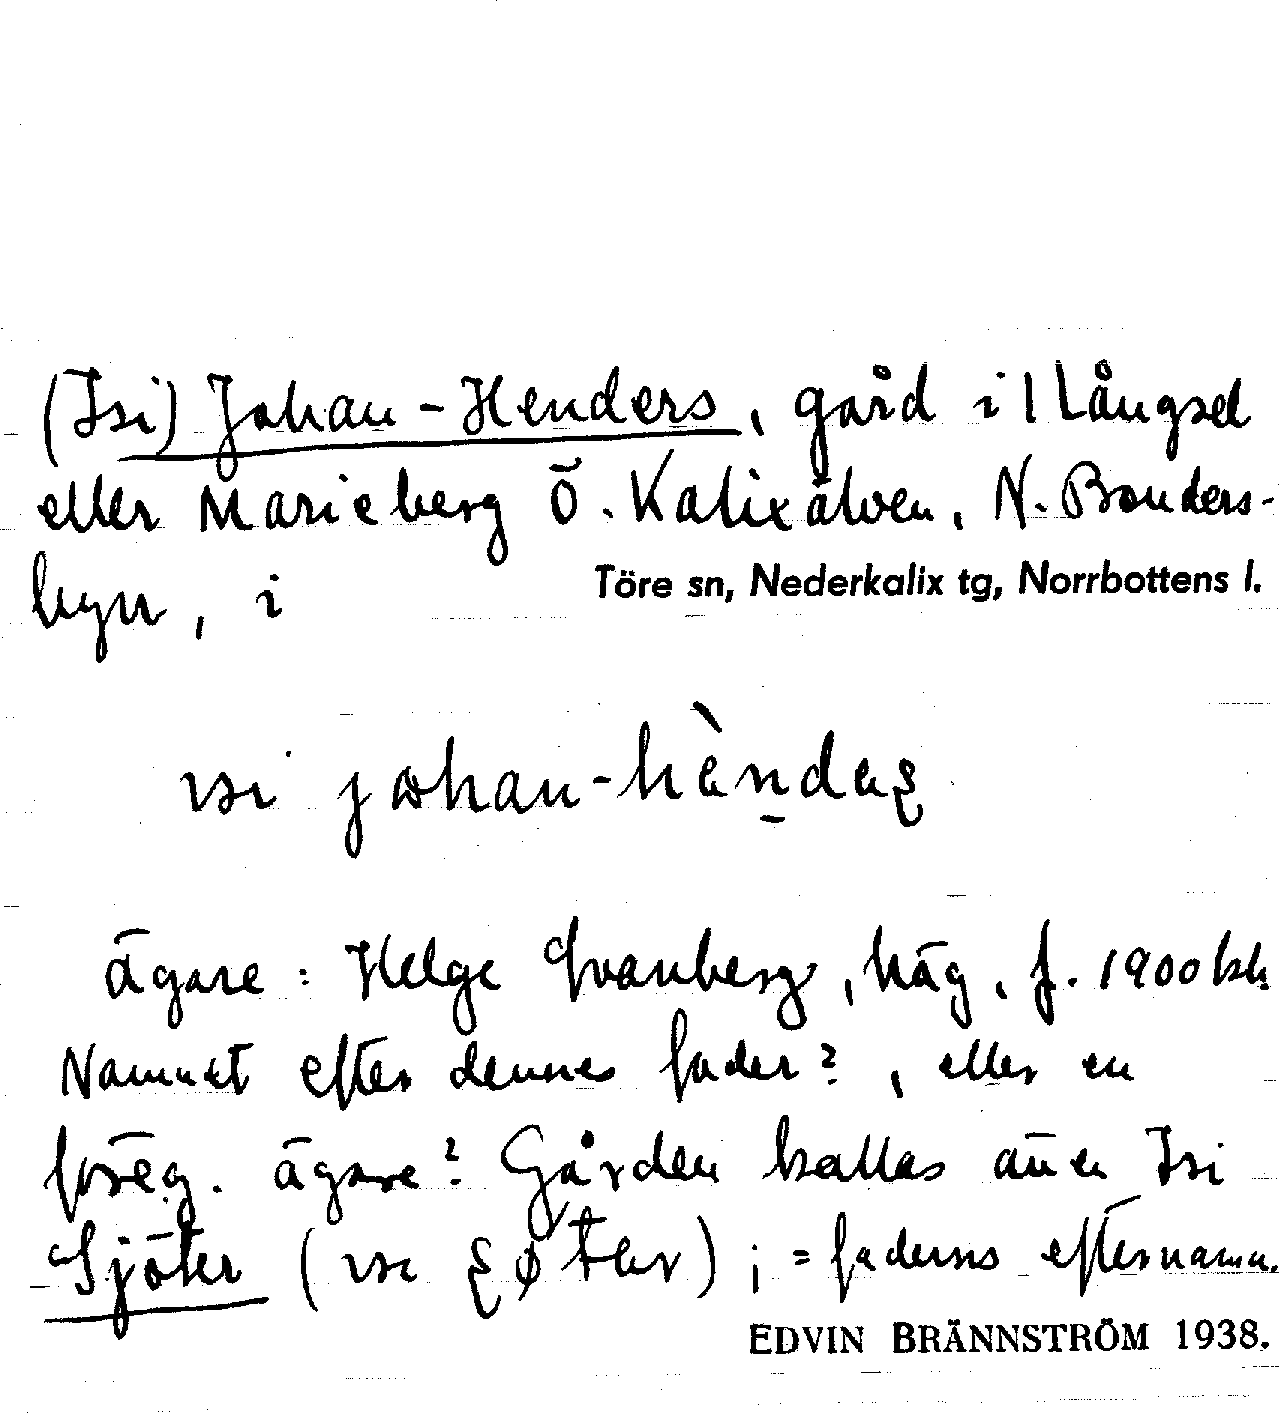 (Isi) Johan-Henders, gård i l Långsel
eller Marieberg Ö. Kalixälven, N. Bonders-
byn, i Töre sn, Nederkalix tg, Norrbottens l.
isi johan-hèndaʂ
ägare: Helge Svanberg, häg, f. 1900 kh.
Namnet efter dennes fader?, eller en
föreg. ägare? Gården kallas även Isi
Sjöter (isi ʂøtər); = faderns efternamn.
EDVIN BRÄNNSTRÖM 1938.